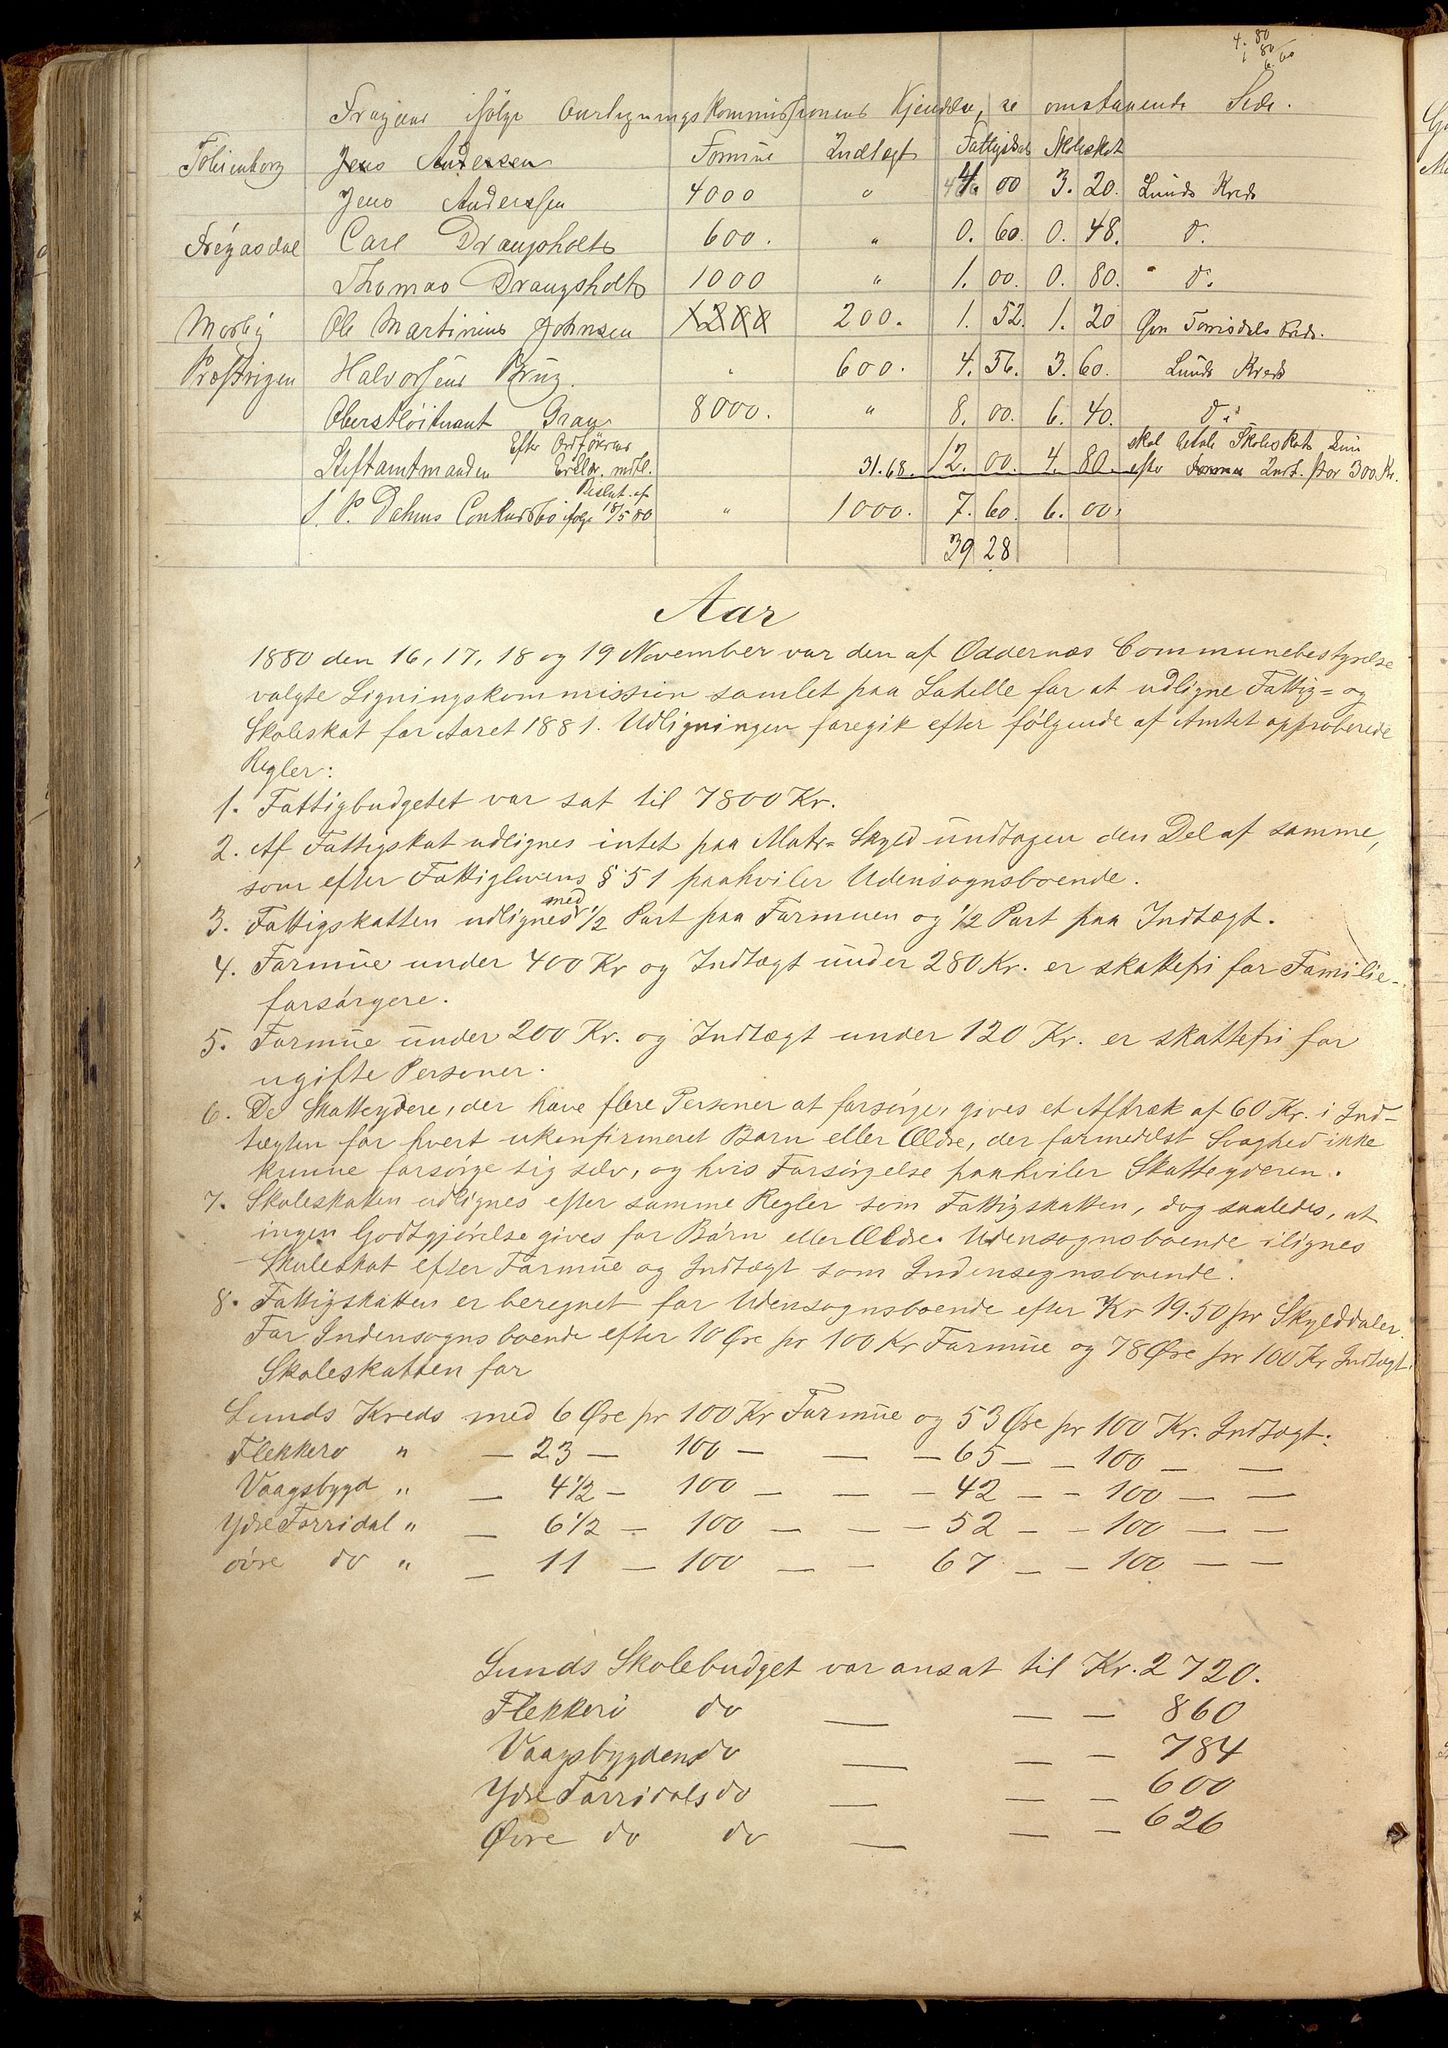 4. 80
1 80
6.60
Fragaar ifølge Overligningskommissionens Kjendelse, se omstaaende Side.
Jens Andersen Formue Indtægt Fattigskat Skoleskat
Jens Anderssen 4000 " 4. 00 3. 20. Lunds Kreds
Carl Drangsholt 600. " 0. 60. 0. 48. do.
Thomas Drangsholt 1000 " 1. 00. 0. 80. do.
Mosby Ole Martinius Johnsen 1200 200. 1. 52. 1. 20 Øvre Torridals Kreds.
Halvorsens Brug. " 600. 4. 56. 3. 60. Lunds Kreds
Oberstløitnant Gran 8000. " 8. 00. 6. 40. do.
Efter Ordførens
Stiftamtmanden 31.68. 12. 00. 4. 80. skal betale Skoleskat
efter Formue Indt. for 300 Kr.
S. P. Dahms Conkursbo ifølge 18/5 80 " 1000. 7. 60. 6. 00.
39 28
Aar
1880 den 16, 17, 18 og 19 November var den af Oddernæs Communebestyrelse
valgte Ligningskommission samlet paa Lahelle for at udligne Fattig= og
Skoleskat for Aaret 1881. Udligningen foregik efter følgende af Amtet approberede
Regler:
1. Fattigbudgetet var sat til 7800 Kr.
2. Af Fattigskat udlignes intet paa Matr= Skyld undtagen den Del af samme,
som efter Fattiglovens § 51 paahviler Udensognsboende.
3. Fattigskatten udlignes med 1/2 Part paa Formuen og 1/2 Part paa Indtægt.
4. Formue under 400 Kr og Indtægt under 280 Kr. er skattefri for Familie-
forsørgere.
5. Formue under 200 Kr. og Indtægt under 120 Kr. er skattefri for
ugifte Personer.
6. De Skatteydere, der have flere Personer at forsørge, gives et Aftræk af 60 Kr. i Ind-
tægten for hvert ukonfirmeret Barn eller Ældre, der formedelst Svaghed ikke
kunne forsørge sig selv, og hvis Forsørgelse paahviler Skatteyderen.
7. Skoleskatten udlignes efter samme Regler som Fattigskatten, dog saaledes, at
ingen Godtgjørelse gives for Børn eller Ældre. Udensognsboende ilignes
Skoleskat efter Formue og Indtægt som Indensognsboende.
8. Fattigskatten er beregnet for Udensognsboende efter Kr 19.50 pr Skylddaler.
For Indensognsboende efter 10 Øre pr 100 Kr Formue og 78 Øre pr 100 Kr Indtægt.
Skoleskatten for
Lunds Kreds med 6 Øre pr 100 Kr Formue og 53 Øre pr 100 Kr. Indtægt.
Flekkerø " — 23 — 100 — — — 65 — — 100 — —
Vaagsbygd " — 4 1/2 — 100 — — — 42 — — 100 — —
Ydre Torridal " — 6 1/2 — 100 — — — 52 — — 100 — —
øvre do " — 11 — 100 — — 67 — — 100 — —
Lunds Skolebudget var ansat til Kr. 2720.
Flekkerø do — — — 860
Vaagsbygdens do — — — 784
Ydre Torridals do — — — 600
Øvre do do — — — 626